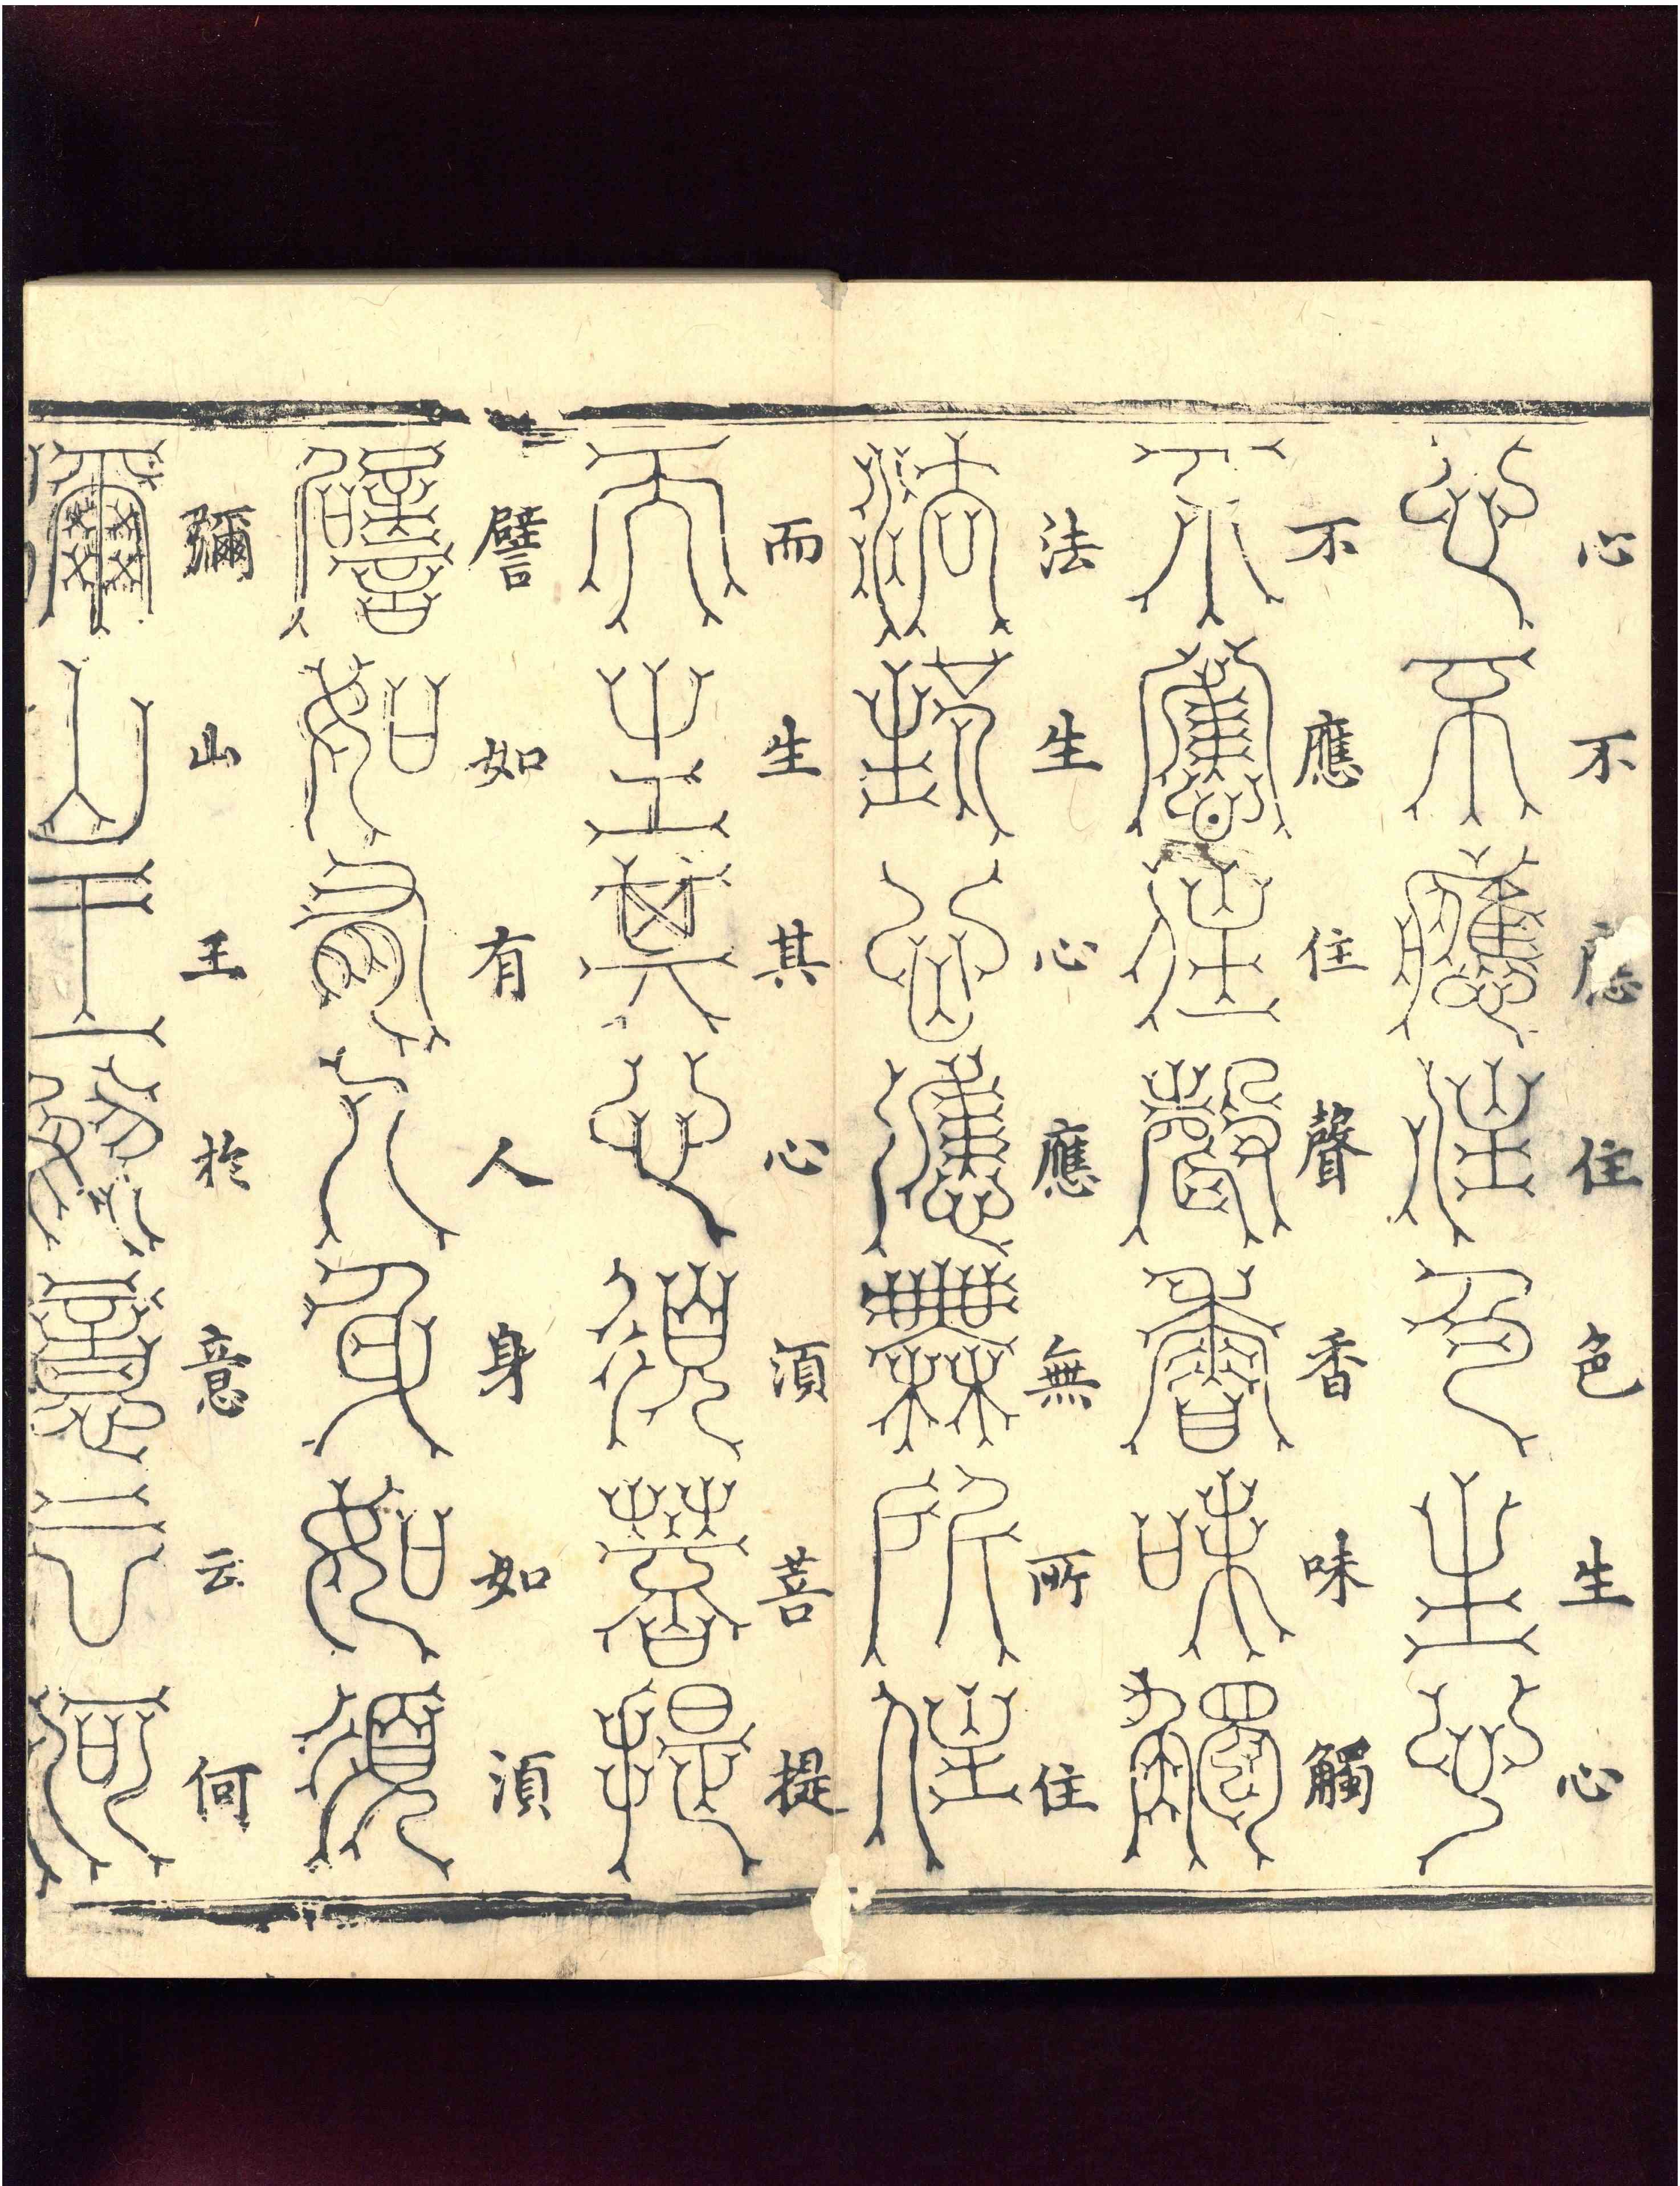 心不應住色生心
心不應住色生心
不應住聲香味觸
不應住聲香味觸
法生心應無所住
法生心應無所住
而生其心湏菩提
而生其心須菩提
譬如有人身如湏
譬如有人身如須
彌山王扵意云何
彌山王於意云何